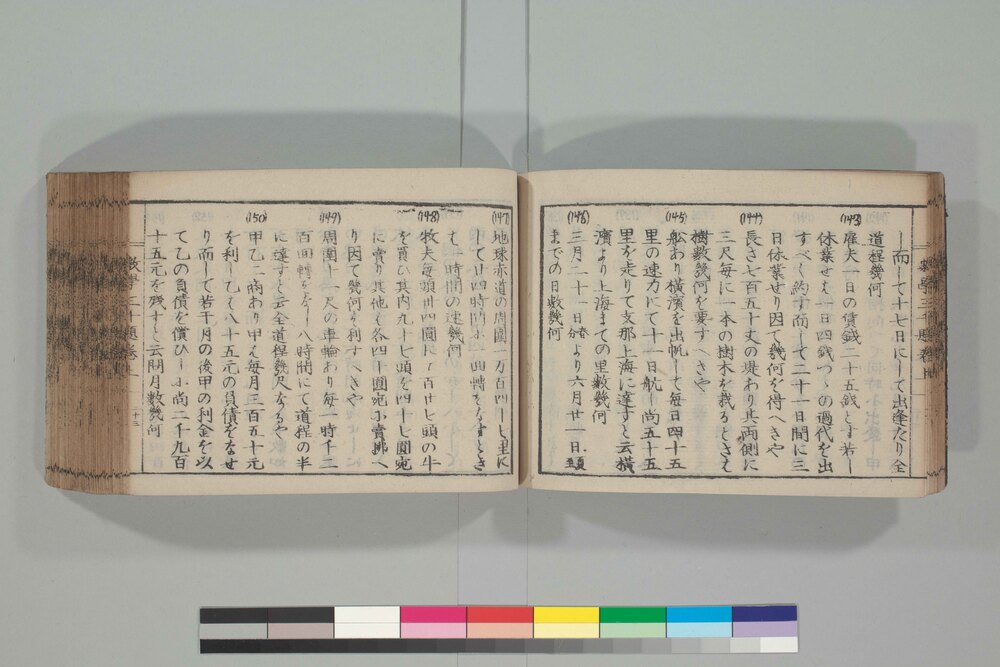 し而して十七日にして出逢たり全
道程幾何
(143)
雇夫一日の賃銭二十五銭とす若し
休業せば毎日四銭つゝの過代を出
すべく約す而して二十一日間に三
日休業せり因て幾何を得べきや
(144)
長さ七百五十丈の堤あり其両側に
三尺毎に一本の樹木を栽るときハ
樹数幾何を要すべきや
(145)
舩あり横濱を出帆して毎日四十五
里の速力にて十一日航し尚五十五
里を走りて支那上海に達すと云横
濱より上海までの里数幾何
(146)
三月二十一日より六月廿一日
までの日数幾何
(147)
地球赤道の周圍一万百四十七里に
して廿四時間に一回轉をなすとき
も一時間の速幾何
(148)
牧夫毎頭卅四圓に百廿七頭の牛
を買ひ其内九十七頭を四十七圓宛
に賣り其他を各四十圓宛に賣拂へ
り因て幾何を利すべきや
(149)
周圍十二尺の車輪あり毎一時千二
百回轉をなし八時間にて道程の半
に達すと云全道程幾尺なるや
(150)
甲乙二商あり甲ハ毎月三百五十元
を利し乙ハ八十五元の負債をなせ
り而して若干月の後甲の利金を以
て乙の負債を償ひしに尚二千九百
十五元を残すと云開月数幾何
十三